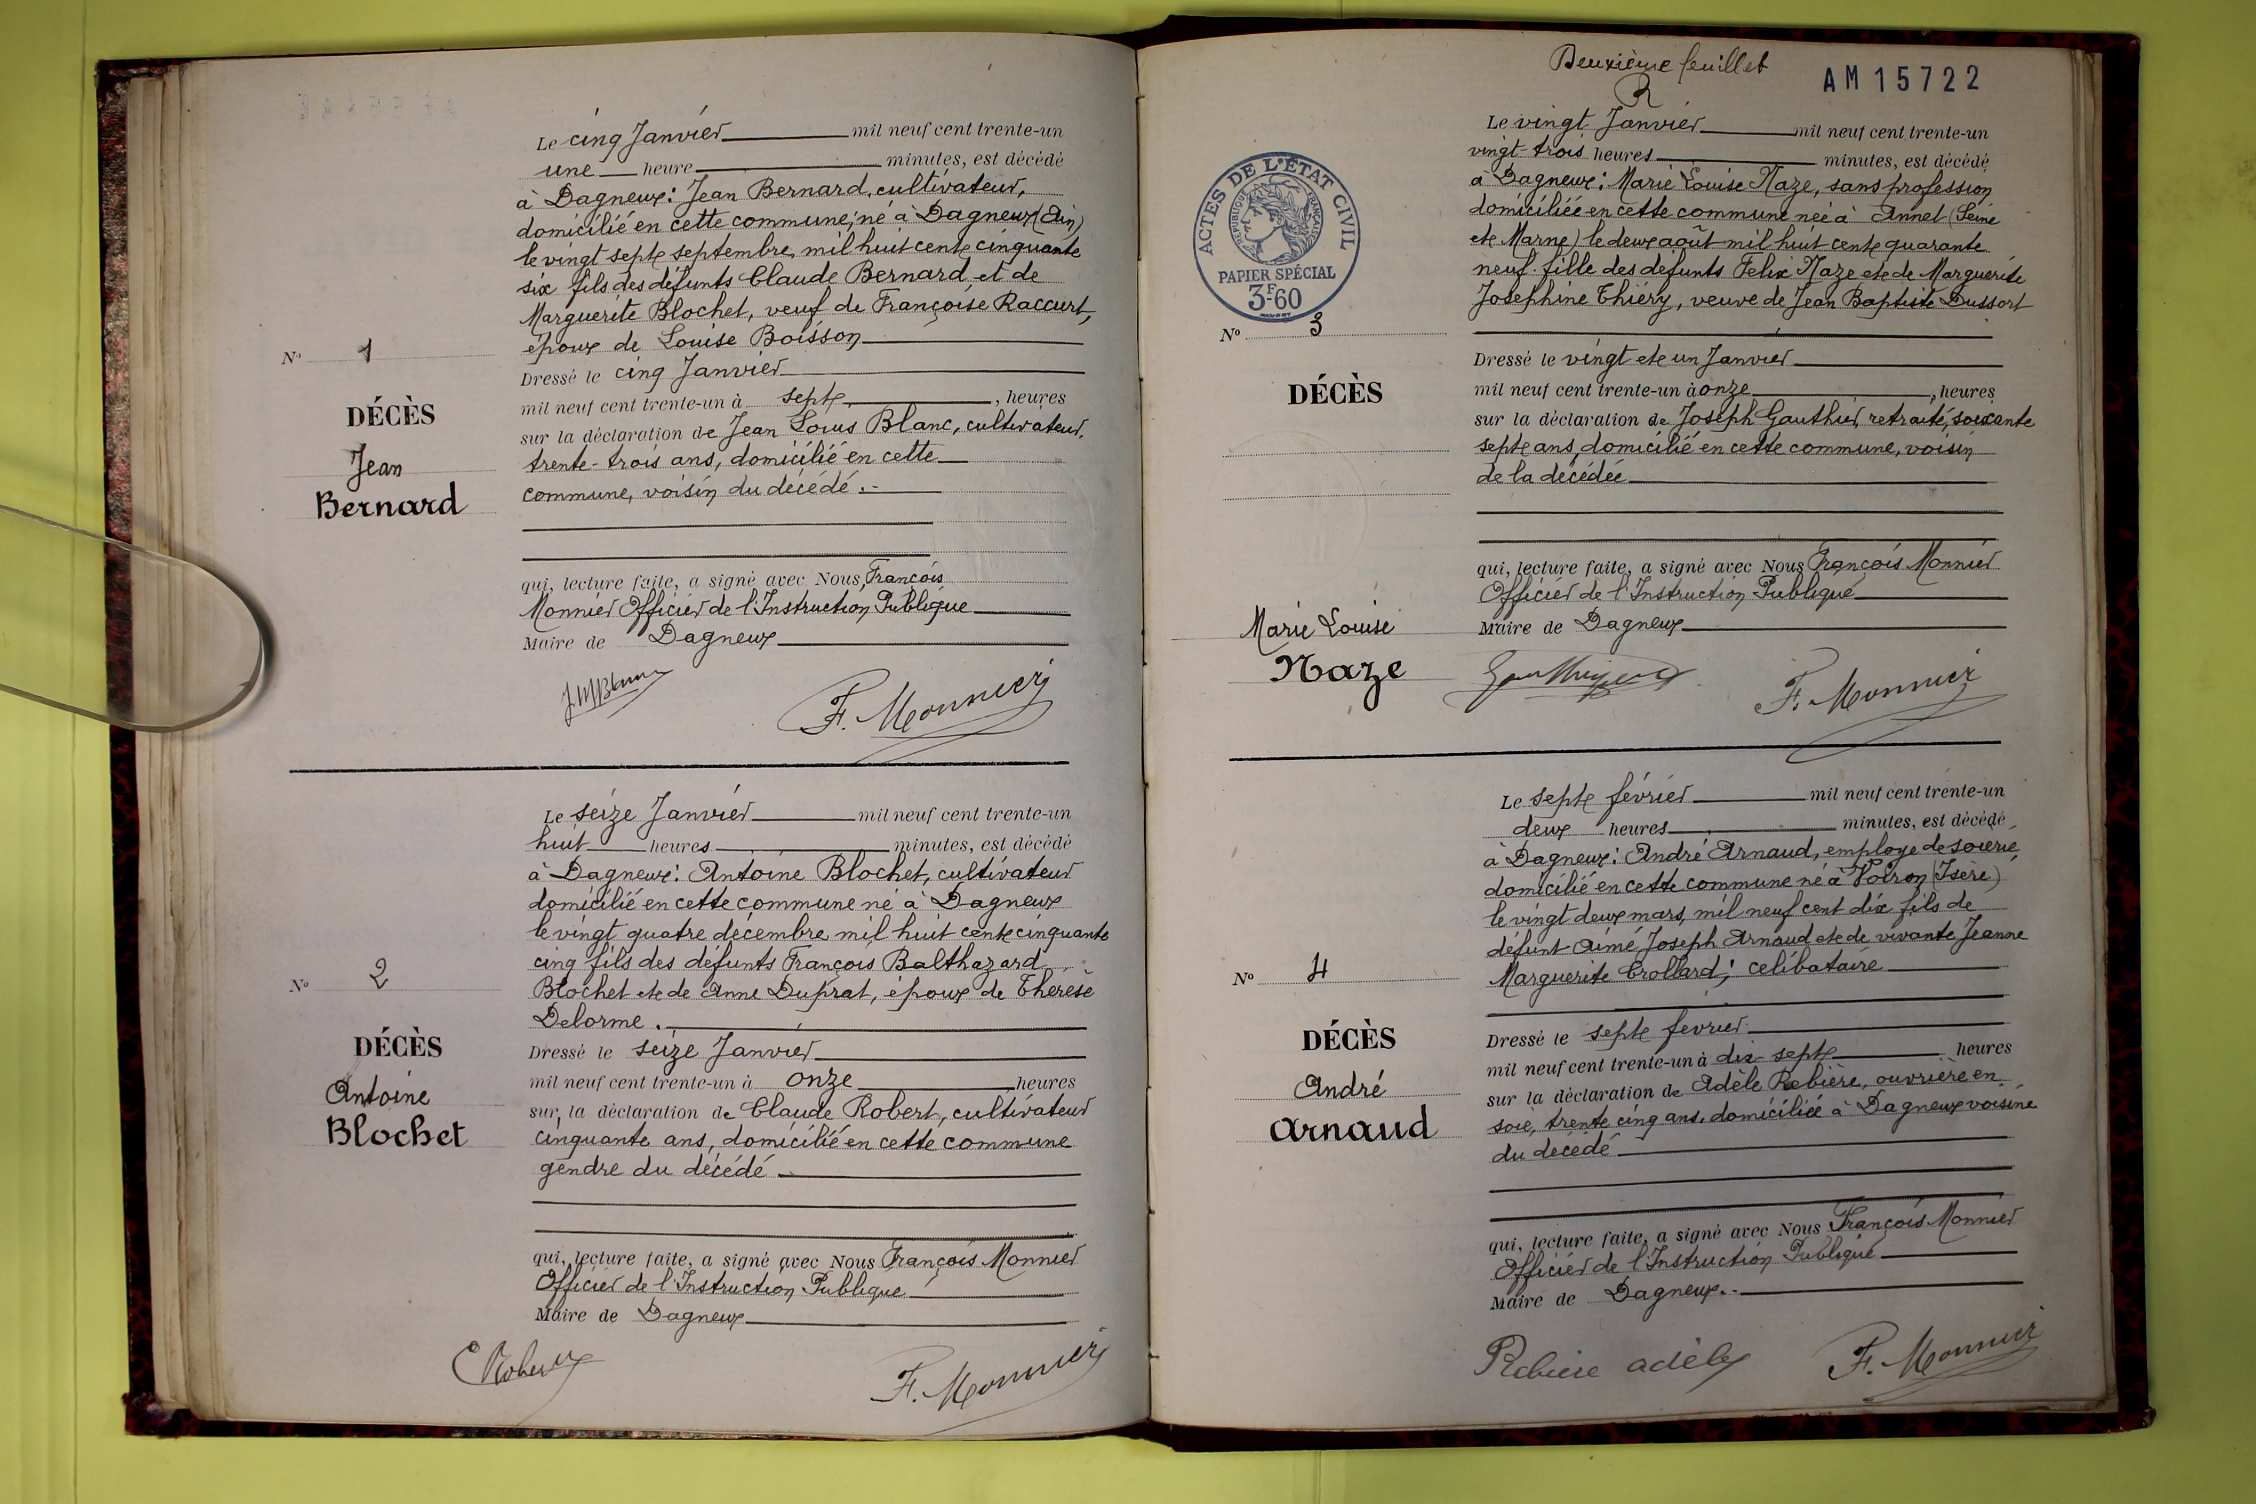 Le cinq Janvier mil neuf cent trente-un
une heure minutes, est décédé
à Dagneux: Jean Bernard, cultivateur,
domicilié en cette commune; né à Dagneux (Ain)
le vingt sept septembre mil huit cent cinquante
six fils des défunts Claude Bernard et de
Marguerite Blochet, veuf de Françoise Raccurt,
époux de Louise Boisson
Dressé le cinq Janvier
mil neuf cent trente-un à sept, heures
sur la déclaration de Jean Louis Blanc, cultivateur,
trente-trois ans, domicilié en cette
commune, voisin du décédé.-
qui, lecture faite, a signé avec Nous, François
Monnier Officier de l'Instruction Publique
Maire de Dagneux
N° 1
DÉCÈS
Jean
Bernard
F. Monnier
Le seize Janvier mil neuf cent trente-un
huit heures minutes, est décédé
à Dagneux: Antoine Blochet, cultivateur
domicilié en cette commune né à Dagneux
le vingt quatre décembre mil huit cent cinquante
cinq fils des défunts François Balthazard
Blochet et de Anne Duprat, époux de Thérèse
Delorme.
Dressé le seize Janvier
mil neuf cent trente-un à onze heures
sur la déclaration de Claude Robert, cultivateur
cinquante ans, domicilié en cette commune
gendre du décédé
qui, lecture faite, a signé avec Nous François Monnier
Officier de l'Instruction Publique
Maire de Dagneux
N° 2
DÉCÈS
Antoine
Blochet
C Robert
F. Monnier
Deuxième feuillet
R
AM15722
ACTES DE L'ÉTAT CIVIL
RÉPUBLIQUE FRANÇAISE
PAPIER SPÉCIAL
3F60
Le vingt Janvier mil neuf cent trente-un
vingt-trois heures minutes, est décédé
à Dagneux: Marie Louise Naze, sans profession
domiciliée en cette commune née à Annet (Seine
et Marne) le deux août mil huit cent quarante
neuf. fille des défunts Felix Naze et de Marguerite
Josephine Thiéry, veuve de Jean Baptiste Dussort
Dressé le vingt et un Janvier
mil neuf cent trente-un à onze, heures
sur la déclaration de Joseph Gauthier, retraité, soixante
sept ans, domicilié en cette commune, voisin
de la décédée
qui, lecture faite, a signé avec Nous François Monnier
Officier de l'Instruction Publique
Maire de Dagneux
N° 3
DÉCÈS
Marie Louise
Naze
F. Monnier
Le sept février mil neuf cent trente-un
deux heures minutes, est décédé
à Dagneux: André Arnaud, employé de soierie
domicilié en cette commune né à Voiron (Isère)
le vingt deux mars, mil neuf cent dix fils de
défunt Aimé Joseph Arnaud et de vivante Jeanne
Marguerite Crollard; célibataire
Dressé le sept février
mil neuf cent trente-un à dix-sept heures
sur la déclaration de Adèle Rebière, ouvrière en
soie, trente cinq ans, domiciliée à Dagneux voisine
du décédé
qui, lecture faite, a signé avec Nous François Monnier
Officier de l'Instruction Publique
Maire de Dagneux.-
N° 4
DÉCÈS
André
Arnaud
Rebière adèle
F. Monnier